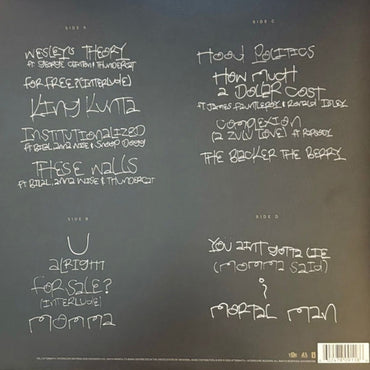 SIDE A
WESLEY'S THEORY
ft. GEORGE CLINTON & THUNDERCAT
FOR FREE? (INTERLUDE)
KING KUNTA
INSTITUTIONALIZED
ft. BILAL, ANNA WISE & SNOOP DOGG
THESE WALLS
ft. BILAL, ANNA WISE & THUNDERCAT
SIDE B
U
alRIGHT
FOR SALE?
(INTERLUDE)
MOMMA
SIDE C
HOOD POLITICS
HOW MUCH
A DOLLAR COST
ft. JAMES FAUNTLEROY & RONALD ISLEY
COMPLEXION
(A ZULU LOVE) ft. RAPSODY
THE BLACKER THE BERRY
SIDE D
YOU AIN'T GOTTA LIE
(MOMMA SAID)
i
MORTAL MAN